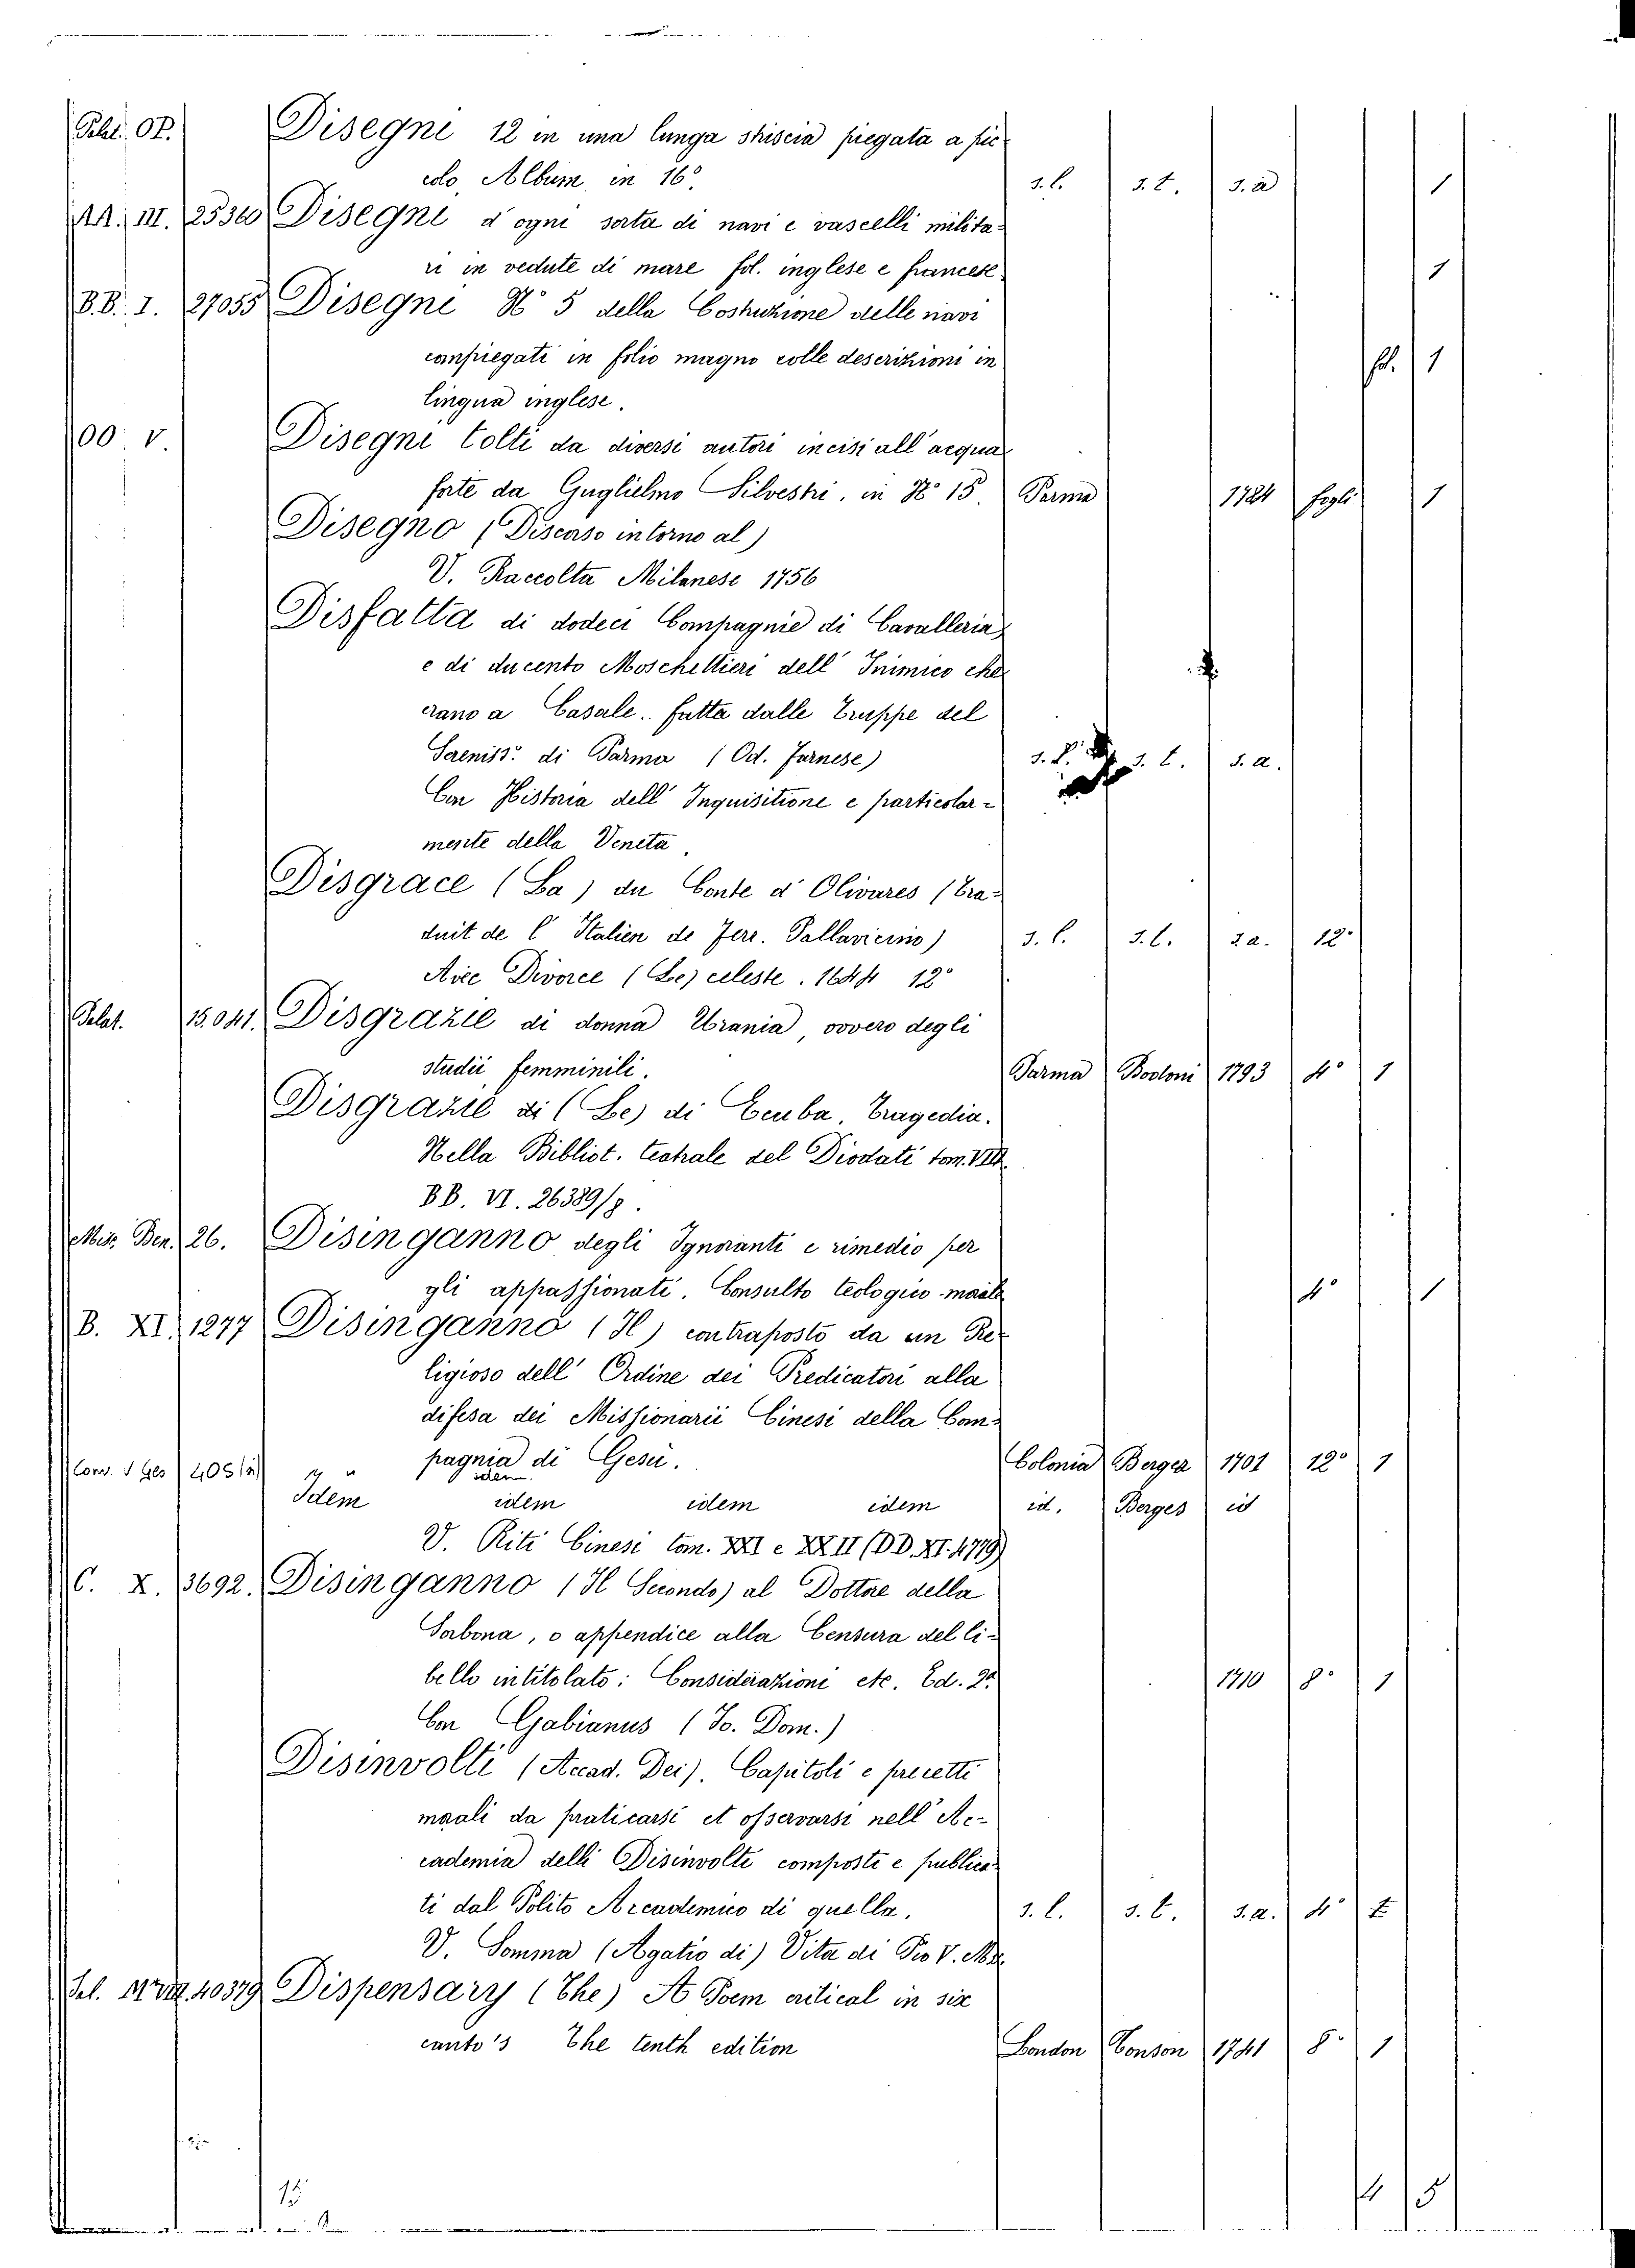 Disegni 12 in una lunga striscia piegata a pic-
colo Album in 16° s. l. s. t. s. a 1
AA. III. 25360 Disegni d'ogni sorta di navi e vascelli milita-
ri in vedute di mare fol. inglese e francese 1
BB. I. 27055 Disegni N° 5 della Costruzione delle navi
conpiegati in folio magno colle descrizioni in fol. 1
lingua inglese.
OO. V. Disegni tolti da diversi autori incisi all'acqua
forte da Guglielmo Silvestri. in N° 15. Parma 1784 fogli 1
Disegno (Discorso intorno al)
V. Raccolta Milanese 1756
Disfatta di dodeci Compagnie di Cavalleria
e di ducento Moschettieri dell' Inimico che
erano a Casale.. fatta dalle Truppe del
Sereniss: di Parma (Od. Farnese) s. l. s. t. s. a.
Con Historia dell' Inquisitione e particolar-
mente della Veneta.
Disgrace (La) du Conte d' Olivares (Tra-
duit de l' Italien de Ferr. Pallavicino) s. l. s. t. s. a. 12°
Avec Divorce (Le) celeste. 1644 12°
Palat. 15.041. Disgrazie di donna Urania, ovvero degli
studii femminili. Parma Bodoni 1793 4° 1
Disgrazie di (Le) di Ecuba, Tragedia.
Nella Bibliot. teatrale del Diodati tom. VIII
BB. VI. 26389/8.
Mis. Ben. 26. Disinganno degli Ignoranti e rimedio per
gli appassionati. Consulto teologico-morale 4° 1
B. XI. 1277 Disinganno (Il) contraposto da un Re-
ligioso dell' Ordine dei Predicatori alla
difesa dei Missionarii Cinesi della Com-
pagnia di Gesù. Colonia Berger 1701 12° 1
Idem idem idem idem id. Berges id
V. Riti Cinesi tom. XXI e XXII (DD. XI. 4779)
C. X. 3692. Disinganno (Il Secondo) al Dottore della
Sorbona, o appendice alla Censura del li-
bello intitolato: Considerazioni etc. Ed. 2ª 1710 8° 1
Con Gabianus (Jo. Dom.)
Disinvolti (Accad. Dei). Capitoli e precetti
morali da praticarsi et osservarsi nell' Ac-
cademia delli Disinvolti composti e publica-
ti dal Polito Arcademico di quella. s. l. s. t. s. a. 4°
V. Somma (Agatio di) Vita di Pio V.
40379 Dispensary (The) A Poem critical in six
canto's The tenth edition London Tonson 1741 8° 1
15